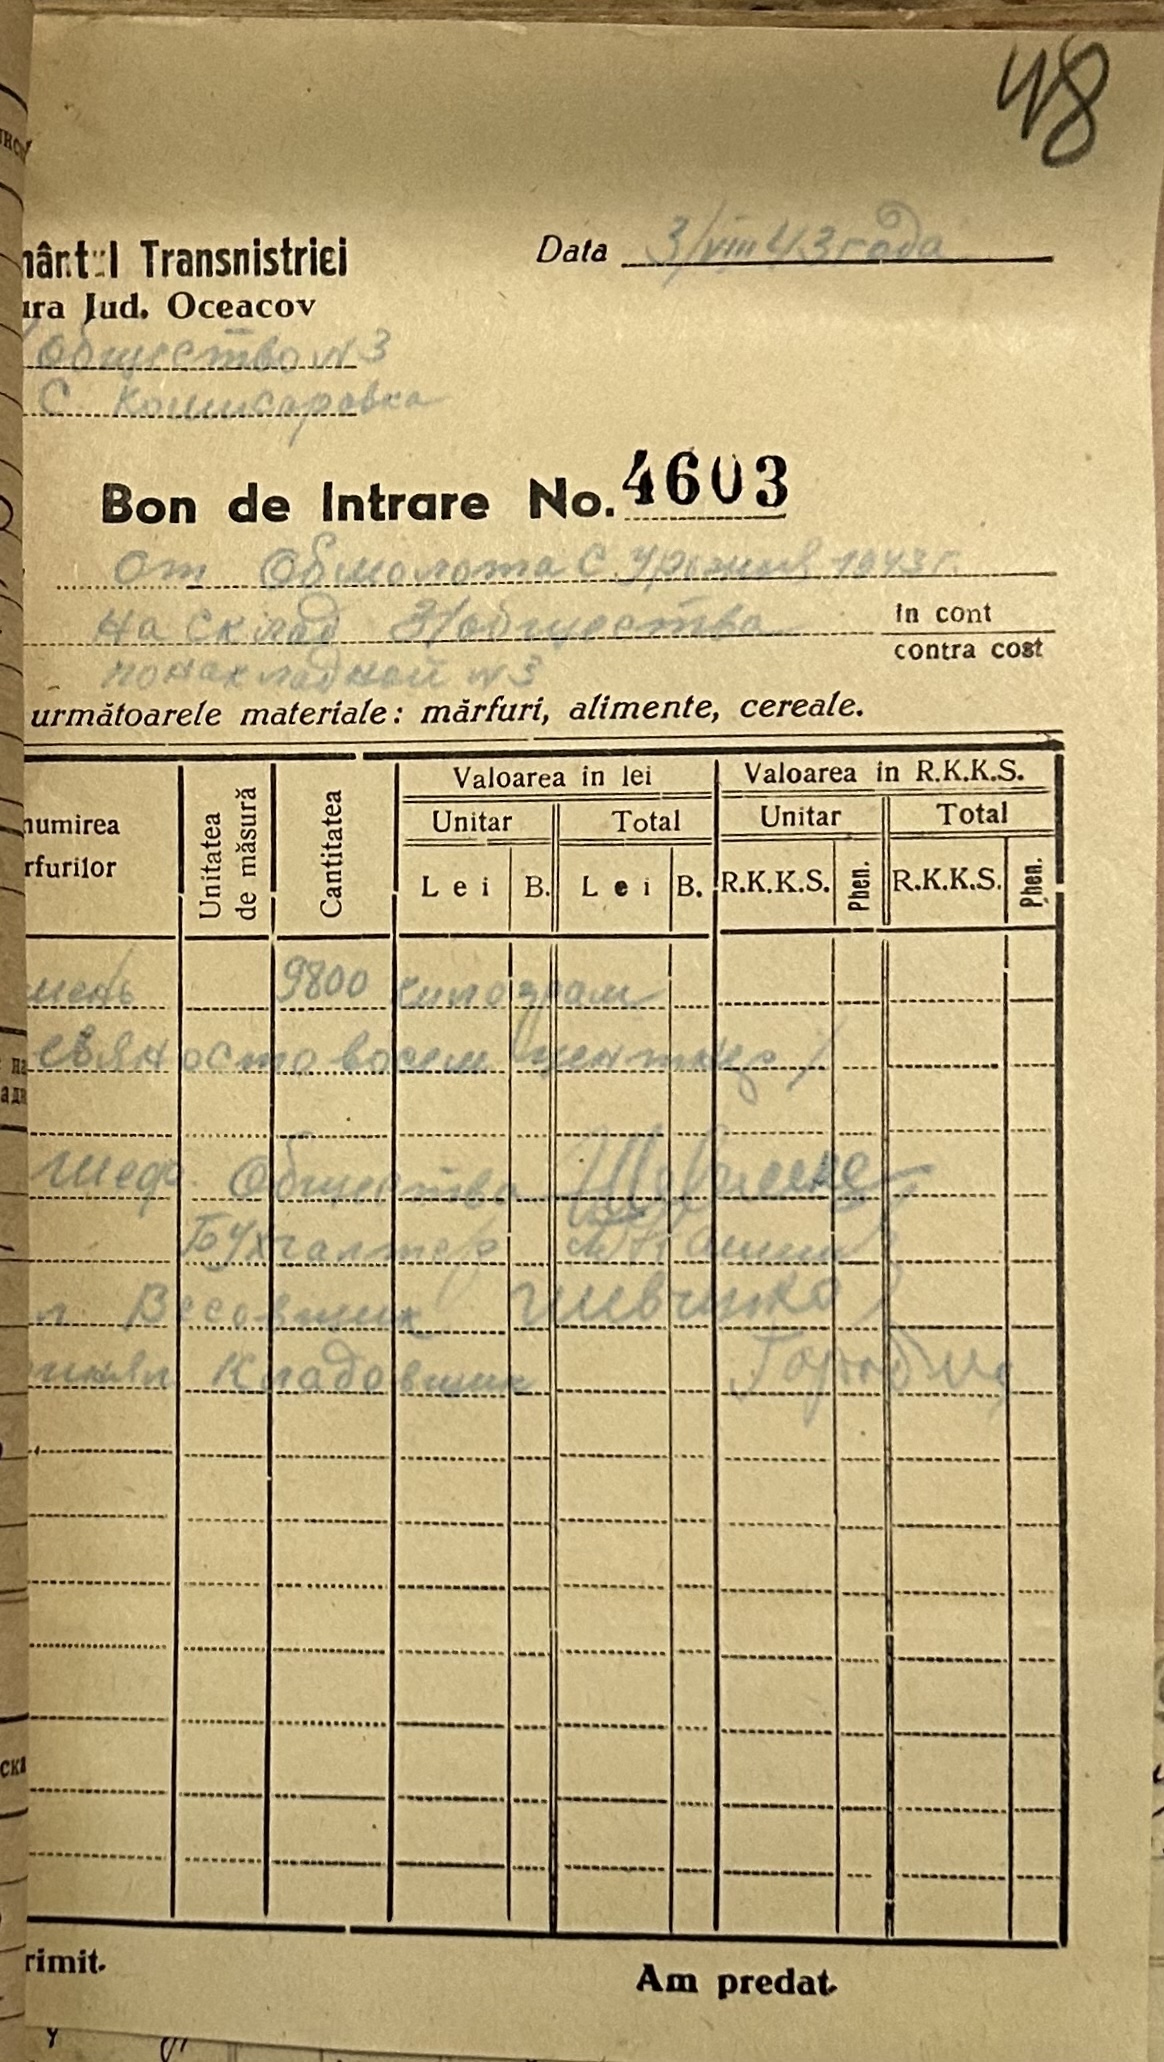 48
mântul Transnistriei
ura Jud. Oceacov
Data 3/VIII 43 года
Общество N 3
С. Комисаровка
Bon de Intrare No. 4603
От Обмолота с урожия 1943 г.
на склад 3/общества
In cont
contra cost
по накладной N 3
următoarele materiale: mărfuri, alimente, cereale.
numirea
rfurilor
Unitatea de măsură
Cantitatea
Valoarea in lei
Valoarea in R.K.K.S.
Unitar
Total
Unitar
Total
Lei
B.
Lei
B.
R.K.K.S.
Phen.
R.K.K.S.
Phen.
мень 9800 килограм
евяносто восем центнер/
Шеф. Общества
Бухгалтер
л Весовщик Шевченко
инял Кладовщик
rimit.
Am predat.